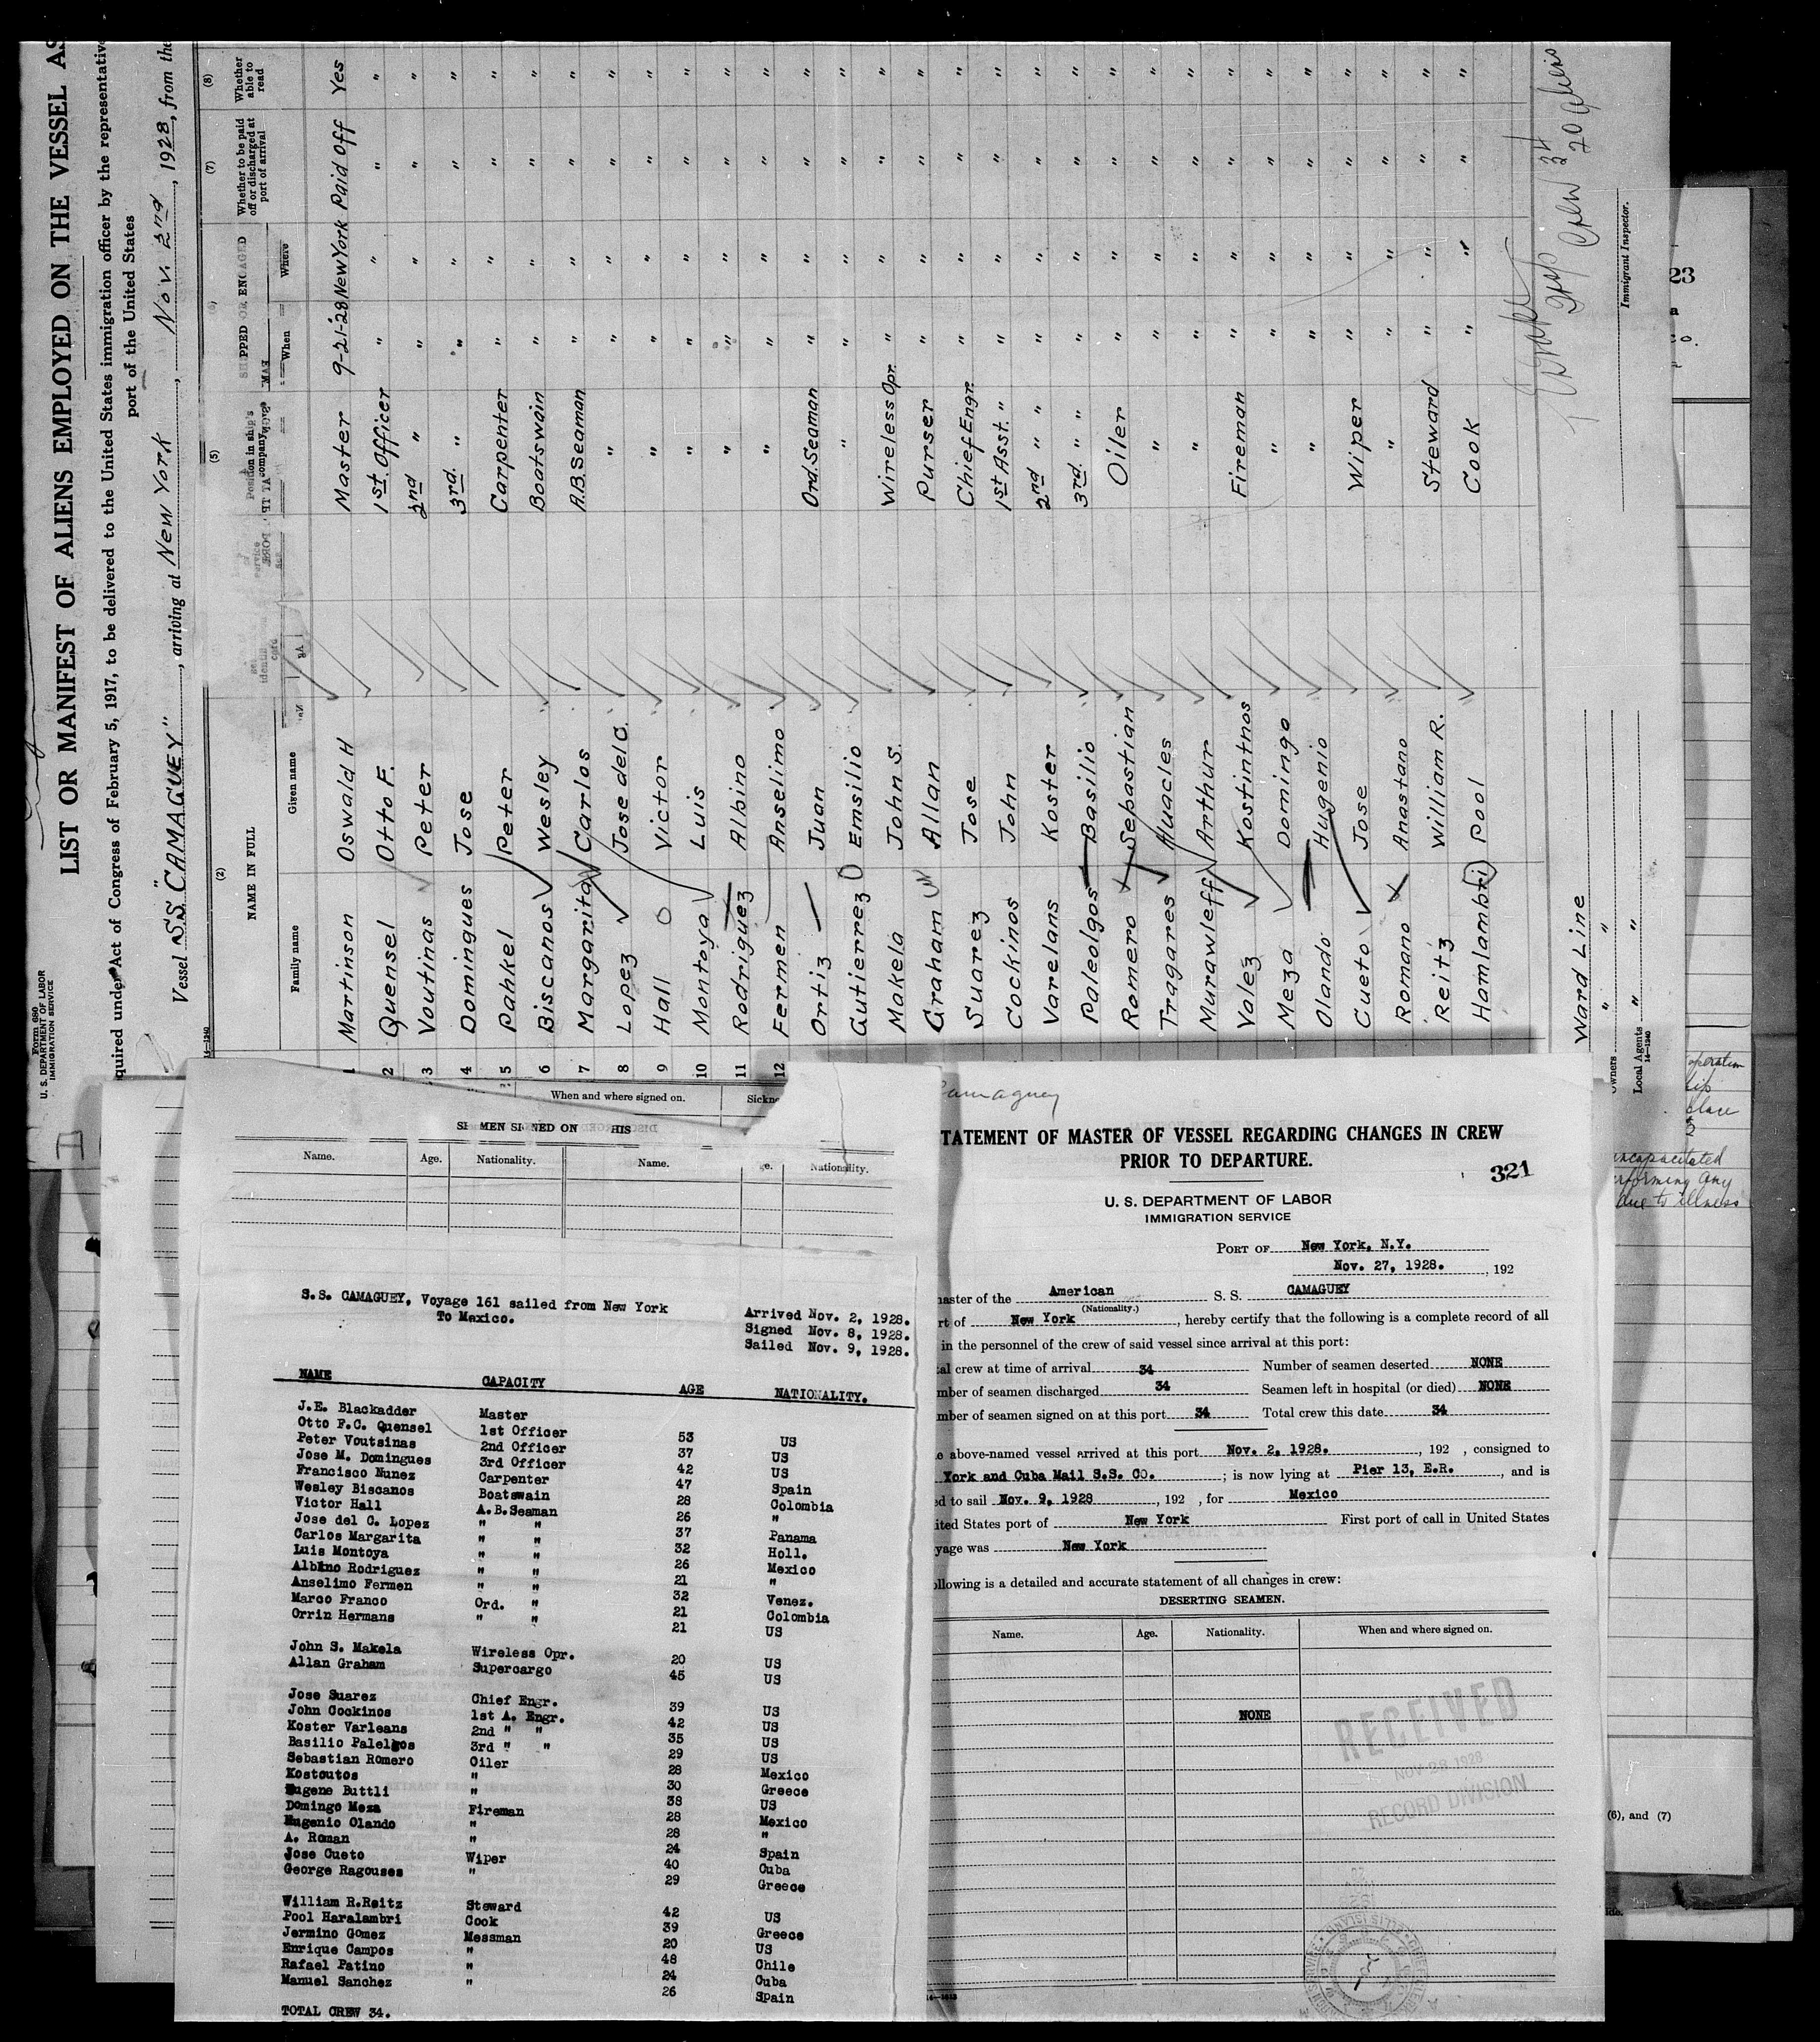 Form 680
U. S. DEPARTMENT OF LABOR
IMMIGRATION SERVICE
LIST OR MANIFEST OF ALIENS EMPLOYED ON THE VESSEL AS
quired under Act of Congress of February 5, 1917, to be delivered to the United States immigration officer by the representative
port of the United States
Vessel SS "CAMAGUEY", arriving at New York, Nov. 2nd, 1928, from the
(2) (5) (7) (8)
NAME IN FULL
Family name Given name
Position in ship's company
SHIPPED OR ENGAGED
When Where
Whether to be paid off or discharged at port of arrival
Whether able to read
1 Martinson Oswald H Master 9-21-28 New York Paid Off Yes
2 Quensel Otto F. 1st Officer " " " "
3 Voutinas Peter 2nd " " " " "
4 Domingues Jose 3rd. " " " " "
5 Pahkel Peter Carpenter " " " "
6 Biscanos Wesley Boatswain " " " "
7 Margarita Carlos A.B. Seaman " " " "
8 Lopez Jose del C. " " " " "
9 Hall Victor " " " " "
10 Montoya Luis " " " " "
11 Rodriguez Albino " " " " "
12 Fermen Anselimo " " " " "
Ortiz Juan Ord. Seaman " " " "
Gutierrez Emsilio " " " " "
Makela John S. Wireless Opr. " " " "
Graham Allan Purser " " " "
Suarez Jose Chief Engr. " " " "
Cockinos John 1st Asst. " " " " "
Varelans Koster 2nd " " " " " "
Paleolgos Basilio 3rd " " " " " "
Romero Sebastian Oiler " " " "
Tragares Huacles " " " " "
Murawleff Arthur " " " " "
Valez Kostintnos Fireman " " " "
Meza Domingo " " " " "
Olando Hugenio " " " " "
Cueto Jose Wiper " " " "
Romano Anastano " " " " "
Reitz William R. Steward " " " "
Hamlambri Pool Cook " " " "
Crew 34
20 Aliens
Immigrant Inspector.
Ward Line
Owners " "
Local Agents " "
14—1240
23
operation
place
incapacitated
performing any
due to illness
(6), and (7)
When and where signed on.
SEAMEN SIGNED ON THIS
Name. Age. Nationality. Name. Age. Nationality.
S.S. CAMAGUEY, Voyage 161 sailed from New York
To Mexico.
Arrived Nov. 2, 1928.
Signed Nov. 8, 1928.
Sailed Nov. 9, 1928.
NAME CAPACITY AGE NATIONALITY.
J.E. Blackadder Master 53 US
Otto F.C. Quensel 1st Officer 37 US
Peter Voutsinas 2nd Officer 42 US
Jose M. Domingues 3rd Officer 47 Spain
Francisco Nunez Carpenter 28 Colombia
Wesley Biscanos Boatswain 26 "
Victor Hall A.B.Seaman 37 Panama
Jose del C. Lopez " " 32 Holl.
Carlos Margarita " " 26 Mexico
Luis Montoya " " 21 "
Albino Rodriguez " " 32 Venez.
Anselimo Fermen " " 21 Colombia
Marco Franco Ord. " 21 US
Orrin Hermans " "
John S. Makela Wireless Opr. 20 US
Allan Graham Supercargo 45 US
Jose Suarez Chief Engr. 39 US
John Cockinos 1st A. Engr. 42 US
Koster Varleans 2nd " " 35 US
Basilio Palelgos 3rd " " 29 US
Sebastian Romero Oiler 28 Mexico
Kostoutos " 30 Greece
Eugene Buttli " 38 US
Domingo Meza Fireman 28 Mexico
Eugenio Olando " 28 "
A. Roman " 24 Spain
Jose Cueto Wiper 40 Cuba
George Ragouses " 29 Greece
William R.Reitz Steward 42 US
Pool Haralambri Cook 39 Greece
Jermino Gomez Messman 20 US
Enrique Campos " 48 Chile
Rafael Patino " 24 Cuba
Manuel Sanchez " 26 Spain
TOTAL CREW 34.
Camaguey
TATEMENT OF MASTER OF VESSEL REGARDING CHANGES IN CREW
PRIOR TO DEPARTURE.
321
U. S. DEPARTMENT OF LABOR
IMMIGRATION SERVICE
PORT OF New York, N.Y.
Nov. 27, 1928. , 192
aster of the American S. S. CAMAGUEY
(Nationality.)
rt of New York, hereby certify that the following is a complete record of all
in the personnel of the crew of said vessel since arrival at this port:
al crew at time of arrival 34 Number of seamen deserted NONE
mber of seamen discharged 34 Seamen left in hospital (or died) NONE
mber of seamen signed on at this port 34 Total crew this date 34
e above-named vessel arrived at this port Nov. 2, 1928. , 192 , consigned to
York and Cuba Mail S.S. CO. ; is now lying at Pier 13, E.R. , and is
ed to sail Nov. 9, 1928 , 192 , for Mexico
ited States port of New York First port of call in United States
yage was New York
ollowing is a detailed and accurate statement of all changes in crew:
DESERTING SEAMEN.
Name. Age. Nationality. When and where signed on.
NONE
RECEIVED
NOV 28 1928
RECORD DIVISION